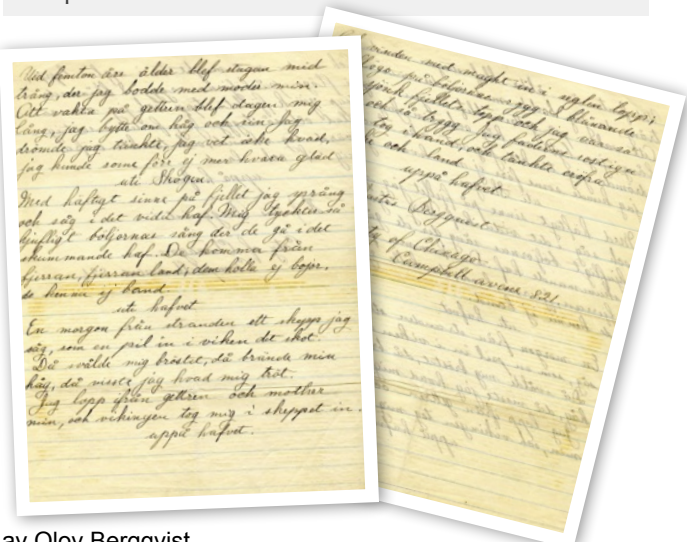 Vid femton års ålder blef stugan mid
trång, der jag bodde med moder min.
Att vakta på gettren blef dagen mig
lång, jag bytte om håg och sin Jag
drömde jag tänkte, jag vet icke hvad,
jag kunde som förr ej mer hvara glad
uti Skogen.
Med haftigt sinne på fjellet jag språng
och såg i det vida haf. Mig tycktes så
ljufligt böljornas sång der de gå i det
skummande haf. De kommer från
fjerran, fjerran land, dem hålla ej bojor,
de känna ej band.
uti hafvet
En morgon från stranden ett skepp jag
såg, som en pil in i viken det sköt.
Då svälde mig bröstet, då brände min
håg, då visste jag hvad mig tröt.
Jag lopp ifrån gettren och mother
min, och vikingen tog mig i skeppet in.
uppå hafvet.
vinden med might in i seglen
på böljornas rygg i blånande
sjönk fjellets topp och jag var så
och så trygg Jag faderns rostign
tog i hand, och tänkte eröfra
och land
uppå hafvet
Bergquist
of Chicago
Campbell avine 821.
av Olov Bergqvist